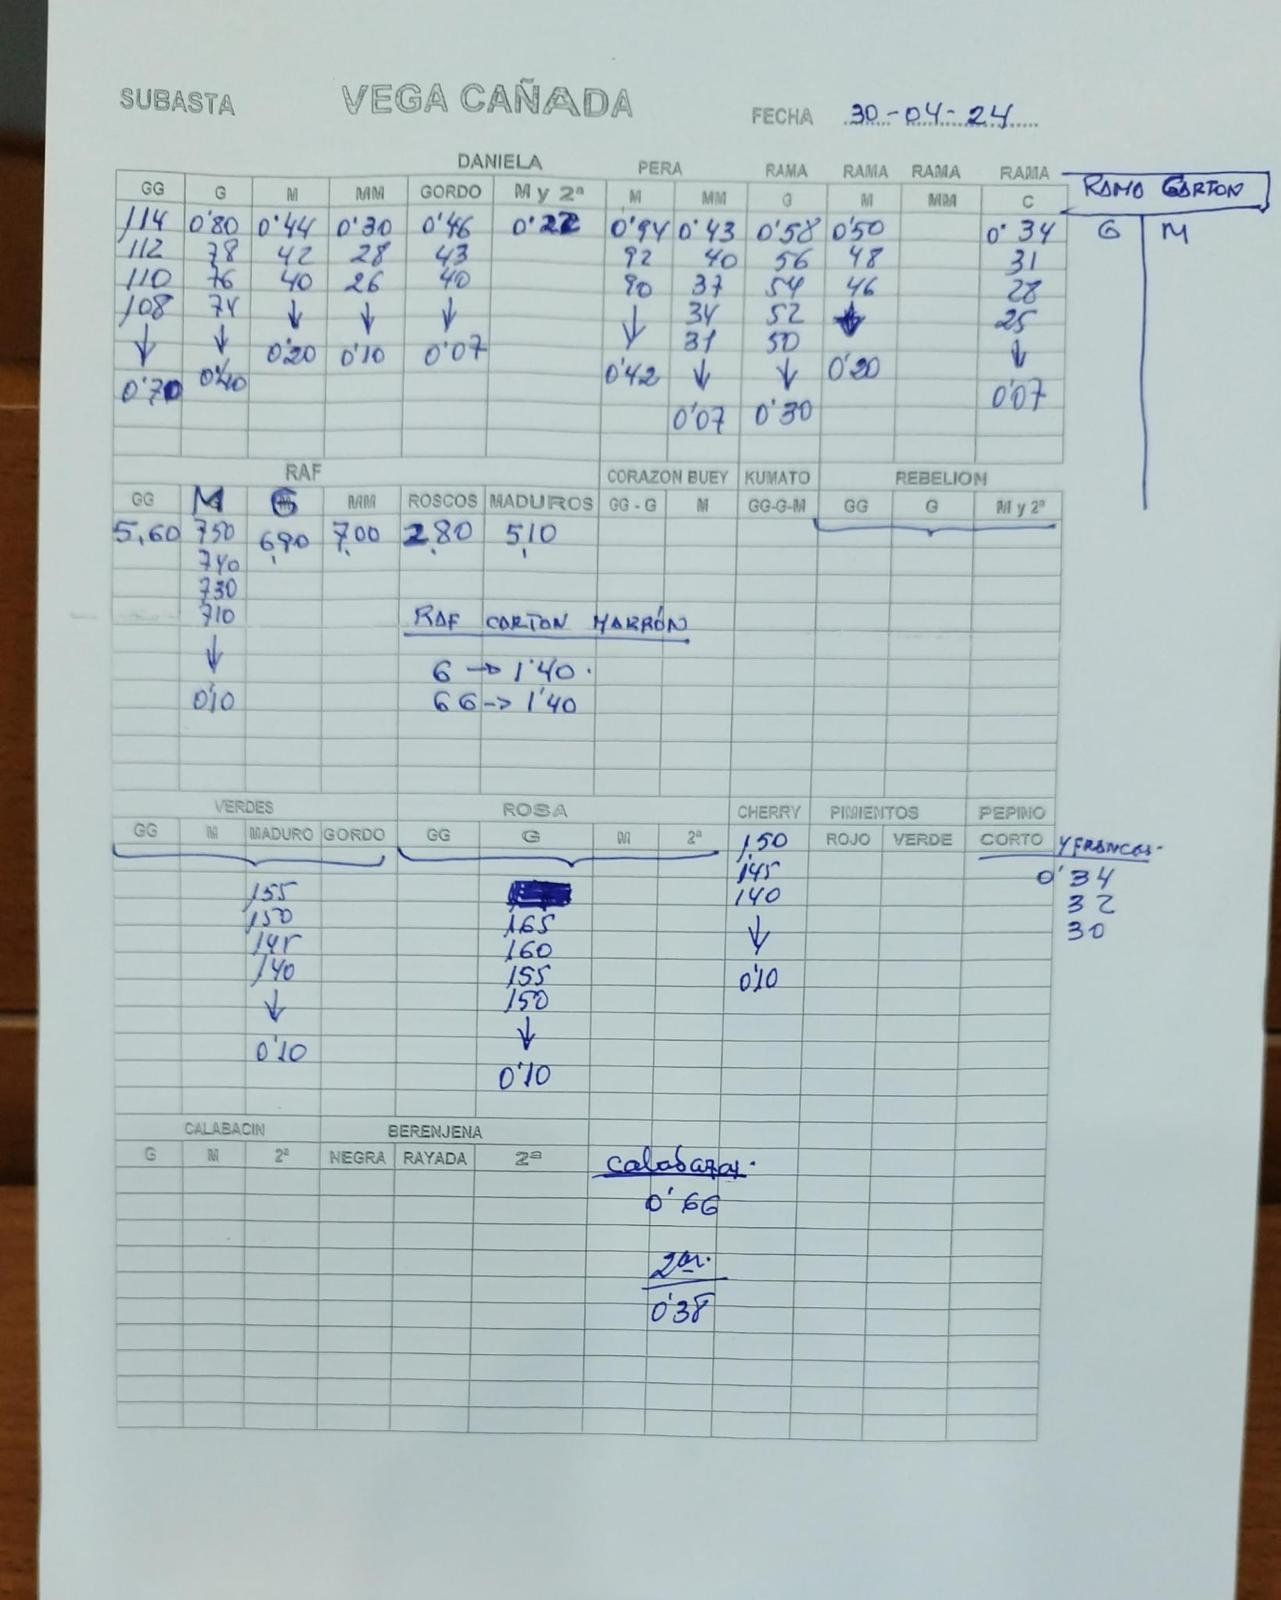 SUBASTA VEGA CAÑADA FECHA 30-04-24
DANIELA PERA RAMA RAMA RAMA RAMA RAMO CARTON
GG G M MM GORDO M y 2ª M MM G M MM C
114 0'80 0'44 0'30 0'46 0'22 0'94 0'43 0'58 0'50 0'34 G M
112 78 42 28 43 92 40 56 48 31
110 76 40 26 40 90 37 54 46 28
108 74 ↓ ↓ ↓ ↓ 34 52 ↓ 25
↓ ↓ 0'20 0'10 0'07 31 50 ↓
0'70 0'40 0'42 ↓ ↓ 0'20 0'07
0'07 0'30
RAF CORAZON BUEY KUMATO REBELION
GG M G MM ROSCOS MADUROS GG - G M GG-G-M GG G M y 2ª
5,60 750 6,90 7,00 2,80 5,10
740
730
710 RAF CARTON MARRÓN
↓ G → 1'40.
0'10 GG -> 1'40
VERDES ROSA CHERRY PIMIENTOS PEPINO
GG M MADURO GORDO GG G M 2ª 1,50 ROJO VERDE CORTO Y FRANCES.
145 0'34
155 140 32
150 165 ↓ 30
145 160
140 155 0'10
↓ 150
0'10 ↓
0'10
CALABACIN BERENJENA
G M 2ª NEGRA RAYADA 2ª Calabazas.
0'66
2as.
0'38